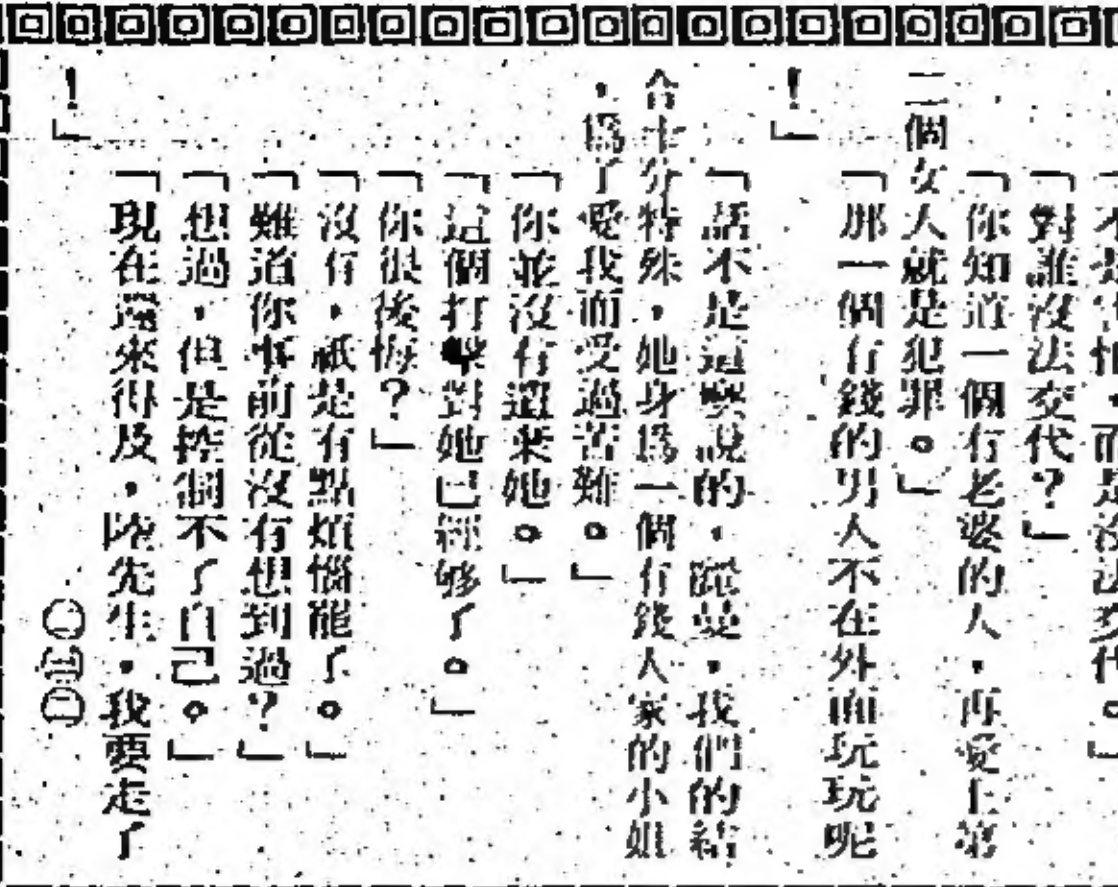 「不是害怕，而是沒法交代。」
「對誰沒法交代？」
「你知道一個有老婆的人，再愛上第
二個女人就是犯罪。」
「那一個有錢的男人不在外面玩玩呢
！」
「話不是這麼說的，曼，我們的結
合十分特殊，她身爲一個有錢人家的小姐
，爲了愛我而受過苦難。」
「你並沒有遺棄她。」
「這個打擊對她已經够了。」
「你很後悔？」
「沒有，祇是有點煩惱罷了。」
「難道你事前從沒有想到過？」
「想過，但是控制不了自己。」
「現在還來得及，陸先生，我要走了
！」